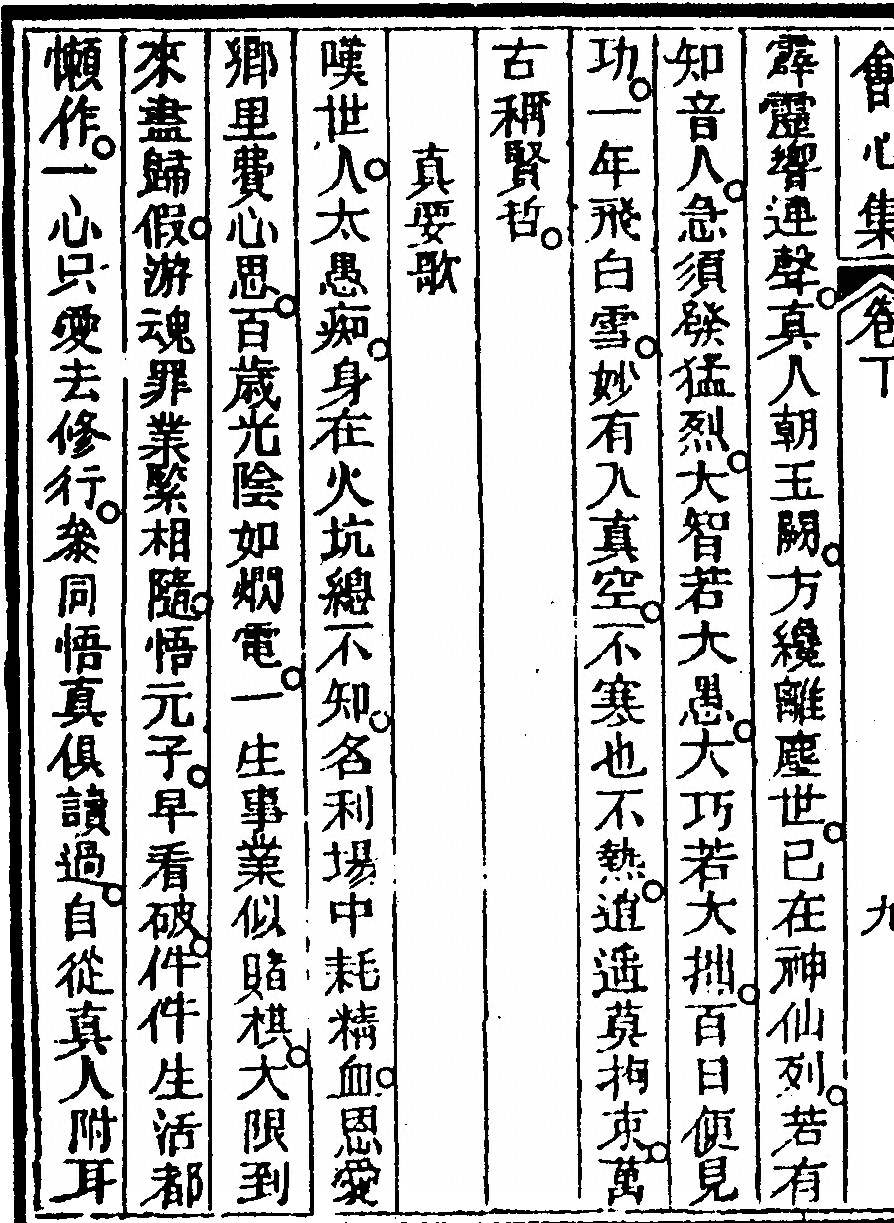 會心集 卷下 九
霹靂響連聲。真人朝玉闕。方纔離塵世。已在神仙列。若有
知音人。急須發猛烈。大智若大愚。大巧若大拙。百日便見
功。一年飛白雪。妙有入真空。不寒也不熱。逍遙莫拘束。萬
古稱賢哲。
真要歌
嘆世人。太愚痴。身在火坑總不知。名利場中耗精血。恩愛
鄉里費心思。百歲光陰如燜電。一生事業似賭棋。大限到
來盡歸假。游魂罪業緊相隨。悟元子。早看破。件件生活都
懶作。一心只愛去修行。參同悟真俱讀過。自從真人附耳